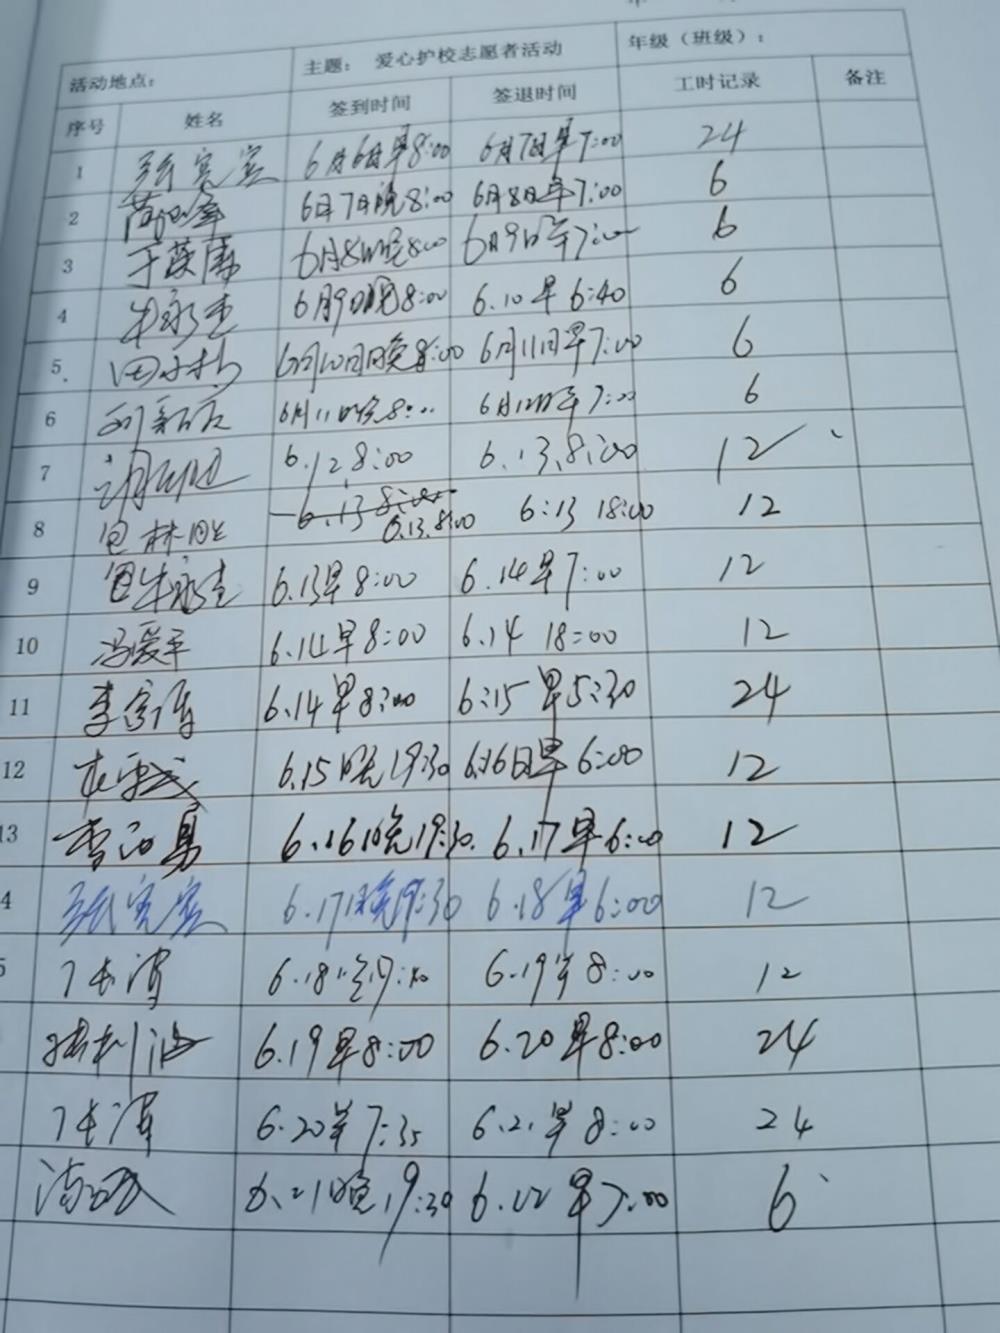 活动地点： 主题： 爱心护校志愿者活动 年级（班级）：
序号 姓名 签到时间 签退时间 工时记录 备注
1 张宽宾 6月6日早8:00 6月7日早7:00 24
2 6日7日晚8:00 6月8日早7:00 6
3 6月8日晚8:00 6月9日早7:00 6
4 牛永生 6月9日晚8:00 6.10早6:40 6
5 6月10日晚8:00 6月11日早7:00 6
6 6月11日晚8:00 6月12日早7:00 6
7 6.12.8:00 6.13.8:00 12
8 包林旺 6.13 8:00 6.13.8:00 6:13 18:00 12
9 牛永生 6.13早8:00 6.14早7:00 12
10 冯爱平 6.14早8:00 6.14 18:00 12
11 6.14早8:00 6:15早5:30 24
12 6.15晚19:30 6.16日早6:00 12
13 6.16晚19:30 6.17早6:00 12
4 张宽宾 6.17晚19:30 6.18早6:00 12
5 6.18 6.19早8:00 12
6.19早8:00 6.20早8:00 24
6.20早7:35 6.21早8:00 24
6.21晚19:30 6.22早7:00 6